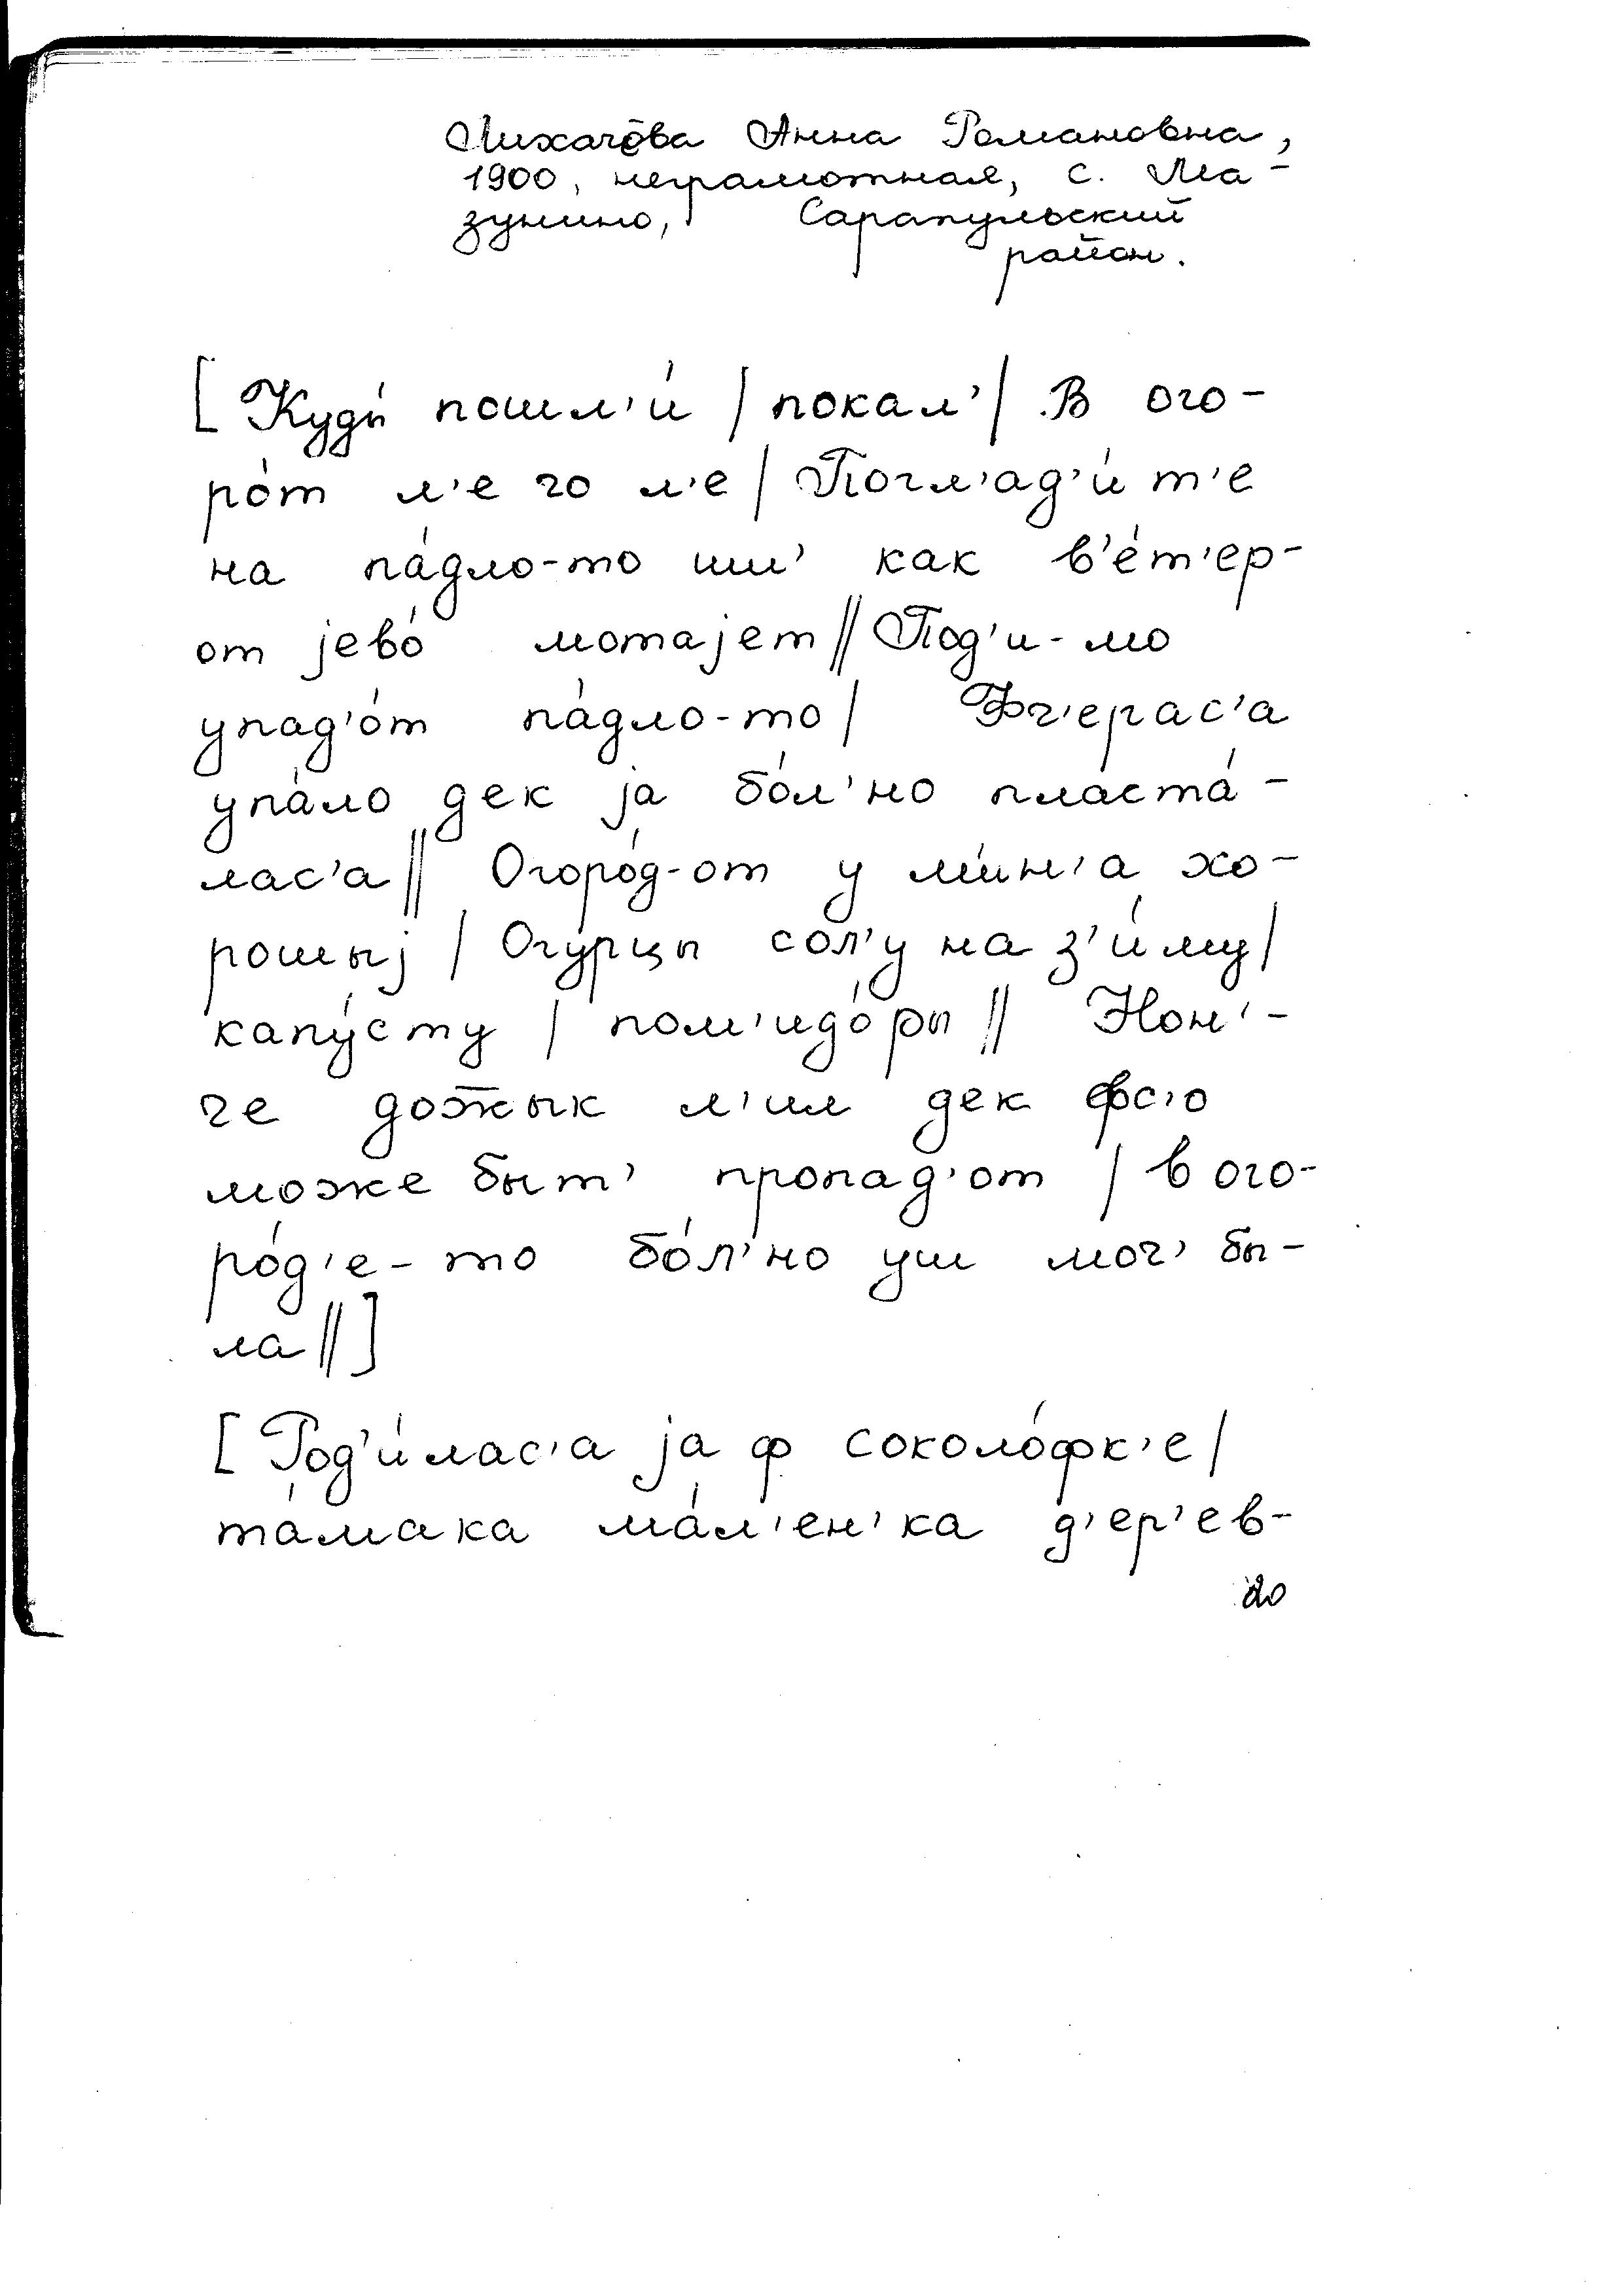 Лихачёва Анна Романовна,
1900, неграмотная, с. Ма-
зунино, Сарапульский
район.
[ Куды́ пошл'и́ | покал' | В ого-
ро́т л'е чо л'е | Погл'ад'и́т'е
на па́дло-то иш' как в'е́т'ер-
от јево́ мотајет || Под'и-мо
упад'о́т па́дло-то | Фч'ерас'а
упа́ло дек ја бо́л'но пласта́-
лас'а || Огоро́д-от у м'ин'а хо-
рошыј | Огурцы сол'у на з'и́му |
капу́сту | пом'идо́ры || Нон'-
че дож̅ык л'ил дек фс'о
може быт' пропад'от | в ого-
ро́д'е-то бо́л'но уш моч' бы-
ла || ]
[ Род'и́лас'а ја ф соколо́фк'е |
та́мака ма́л'ен'ка д'ер'ев-
20